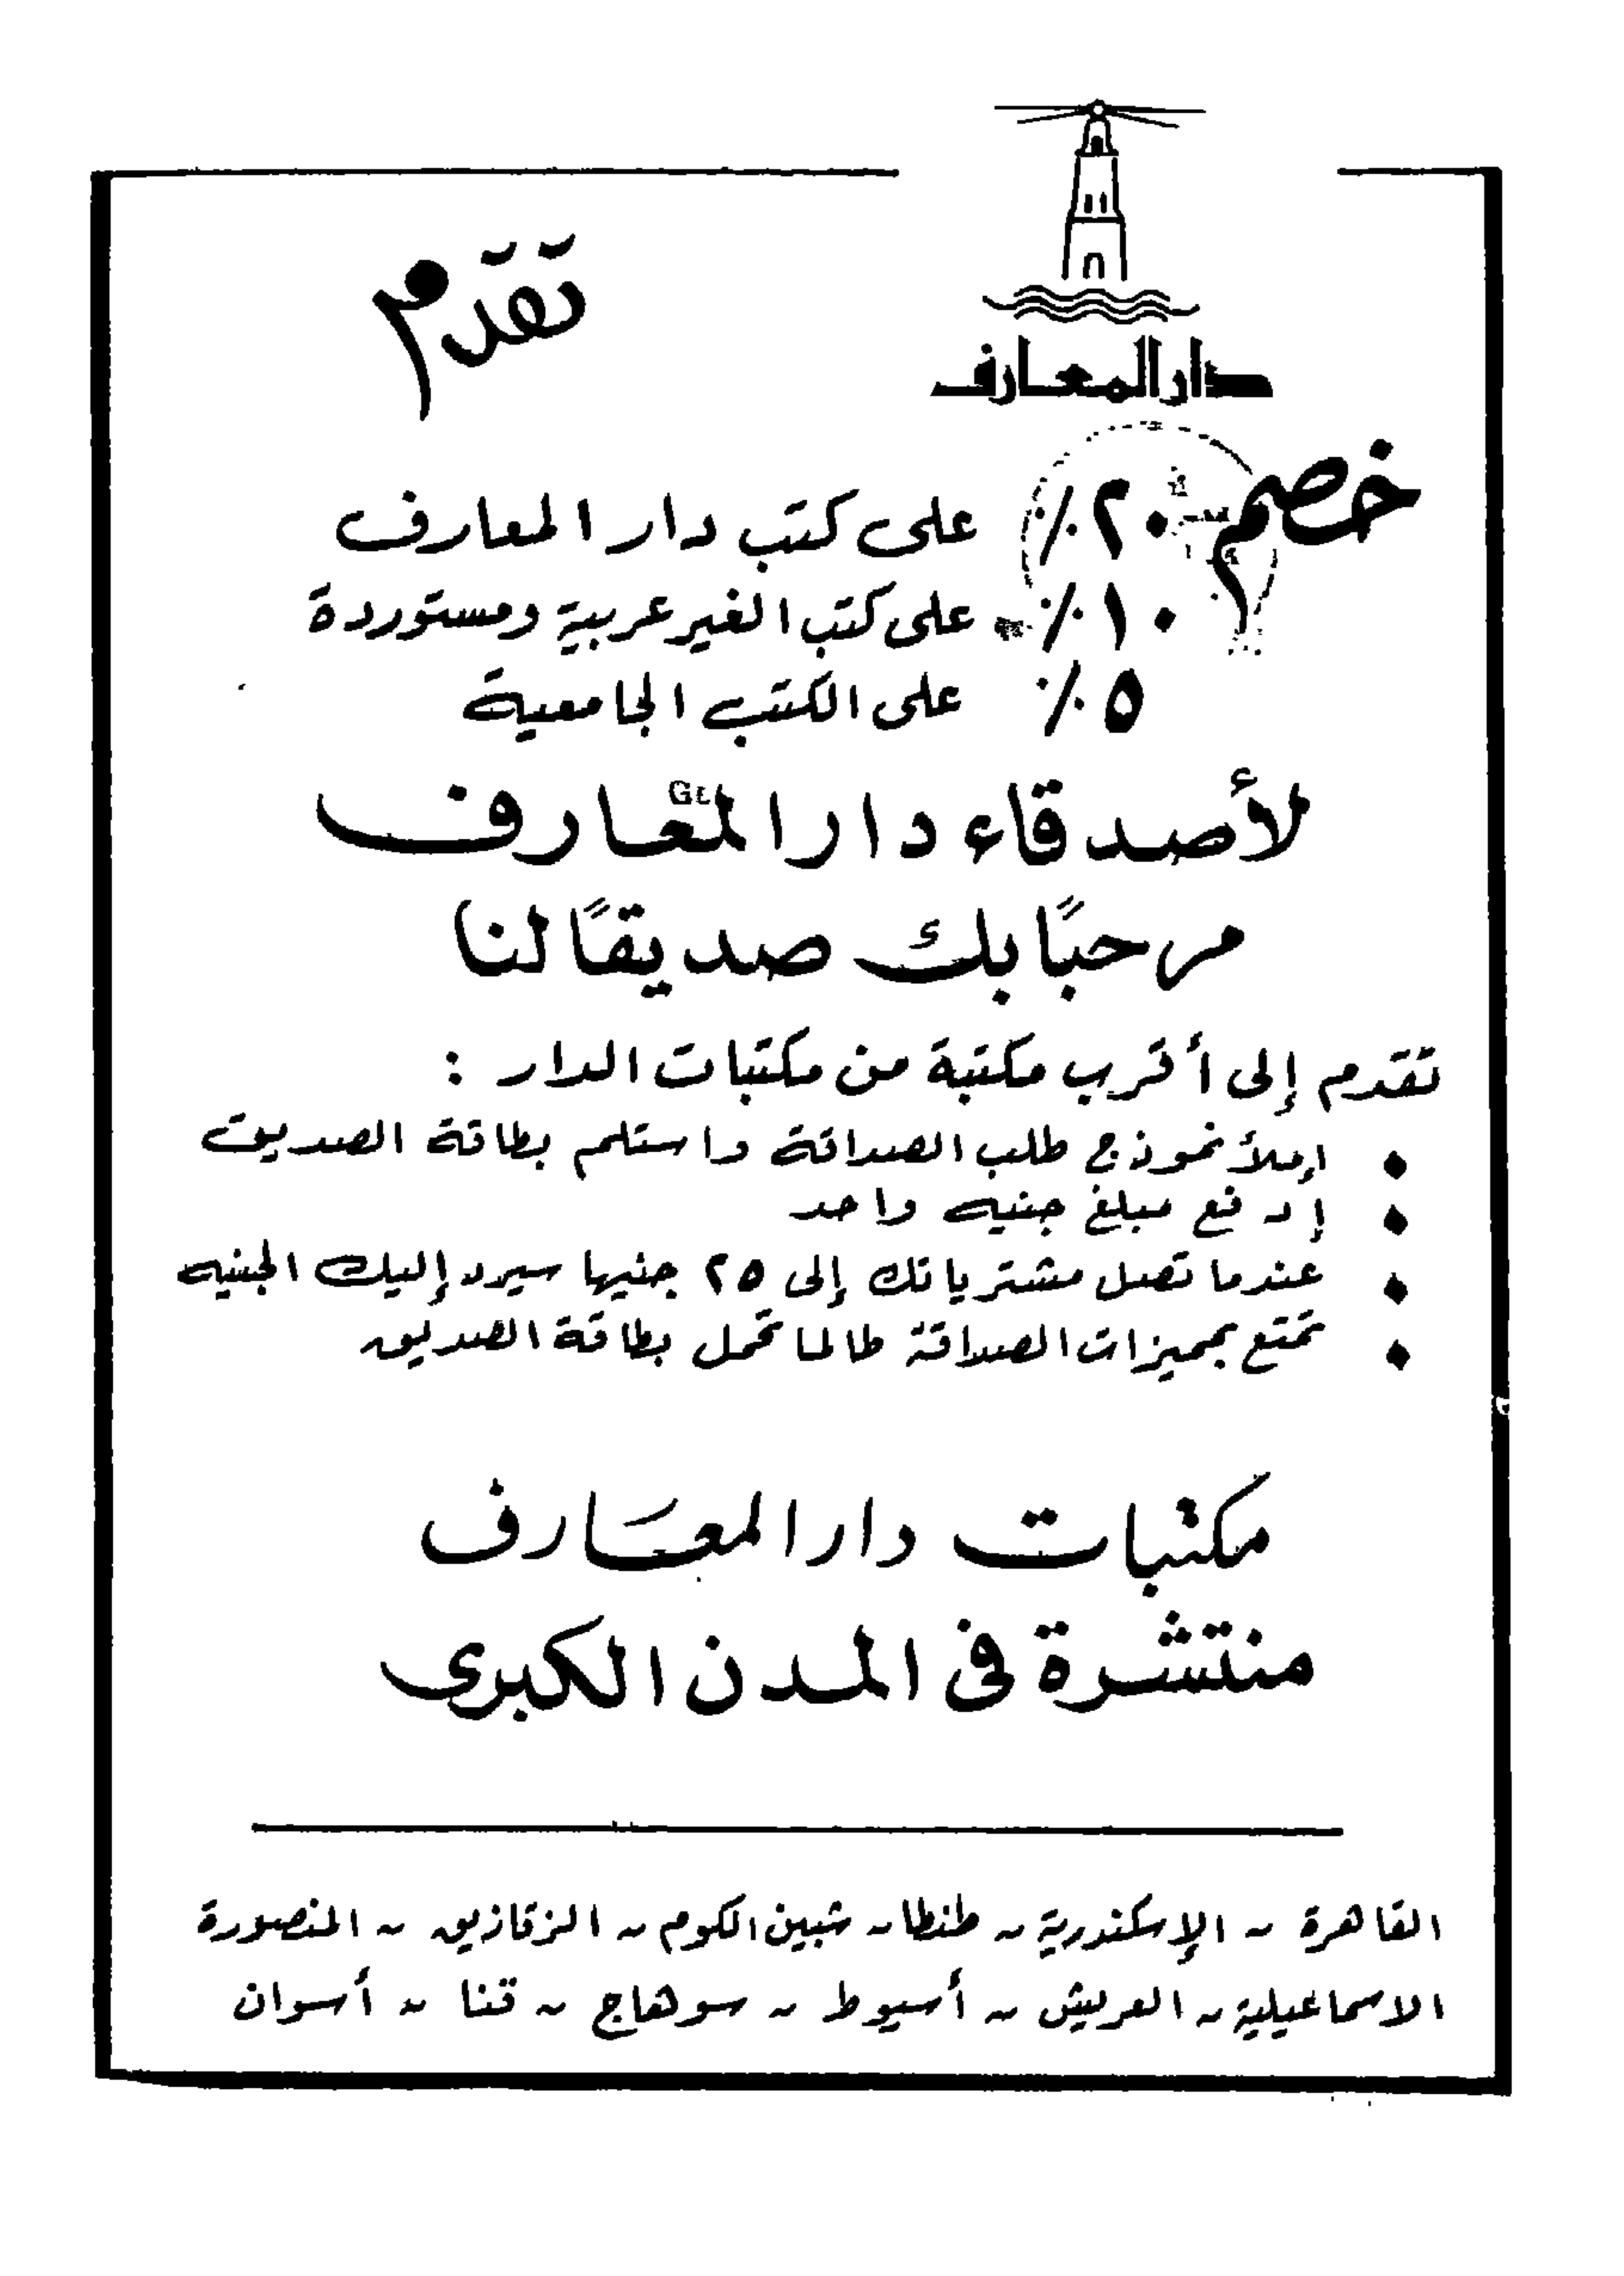 دار المعارف
تقدّم
خصم ٢٠٪ على كتب دار المعارف
١٠٪ على كتب الغير عربية ومستوردة
٥٪ على الكتب الجامعية
لأصدقاء دار المعارف
مرحبًا بك صديقًا لنا
تقدم إلى أقرب مكتبة من مكتبات الدار :
• إملأ نموذج طلب الصداقة واستلم بطاقة الصديق
• إدفع مبلغ جنيه واحد
• عندما تصل مشترياتك إلى ٢٥ جنيها سيرد إليك الجنيه
• تمتع بمميزات الصداقة طالما تحمل بطاقة الصديق
مكتبات دار المعارف
منتشرة فى المدن الكبرى
القاهرة - الإسكندرية - طنطا - شبين الكوم - الزقازيق - المنصورة
الاسماعيلية - العريش - أسيوط - سوهاج - قنا - أسوان